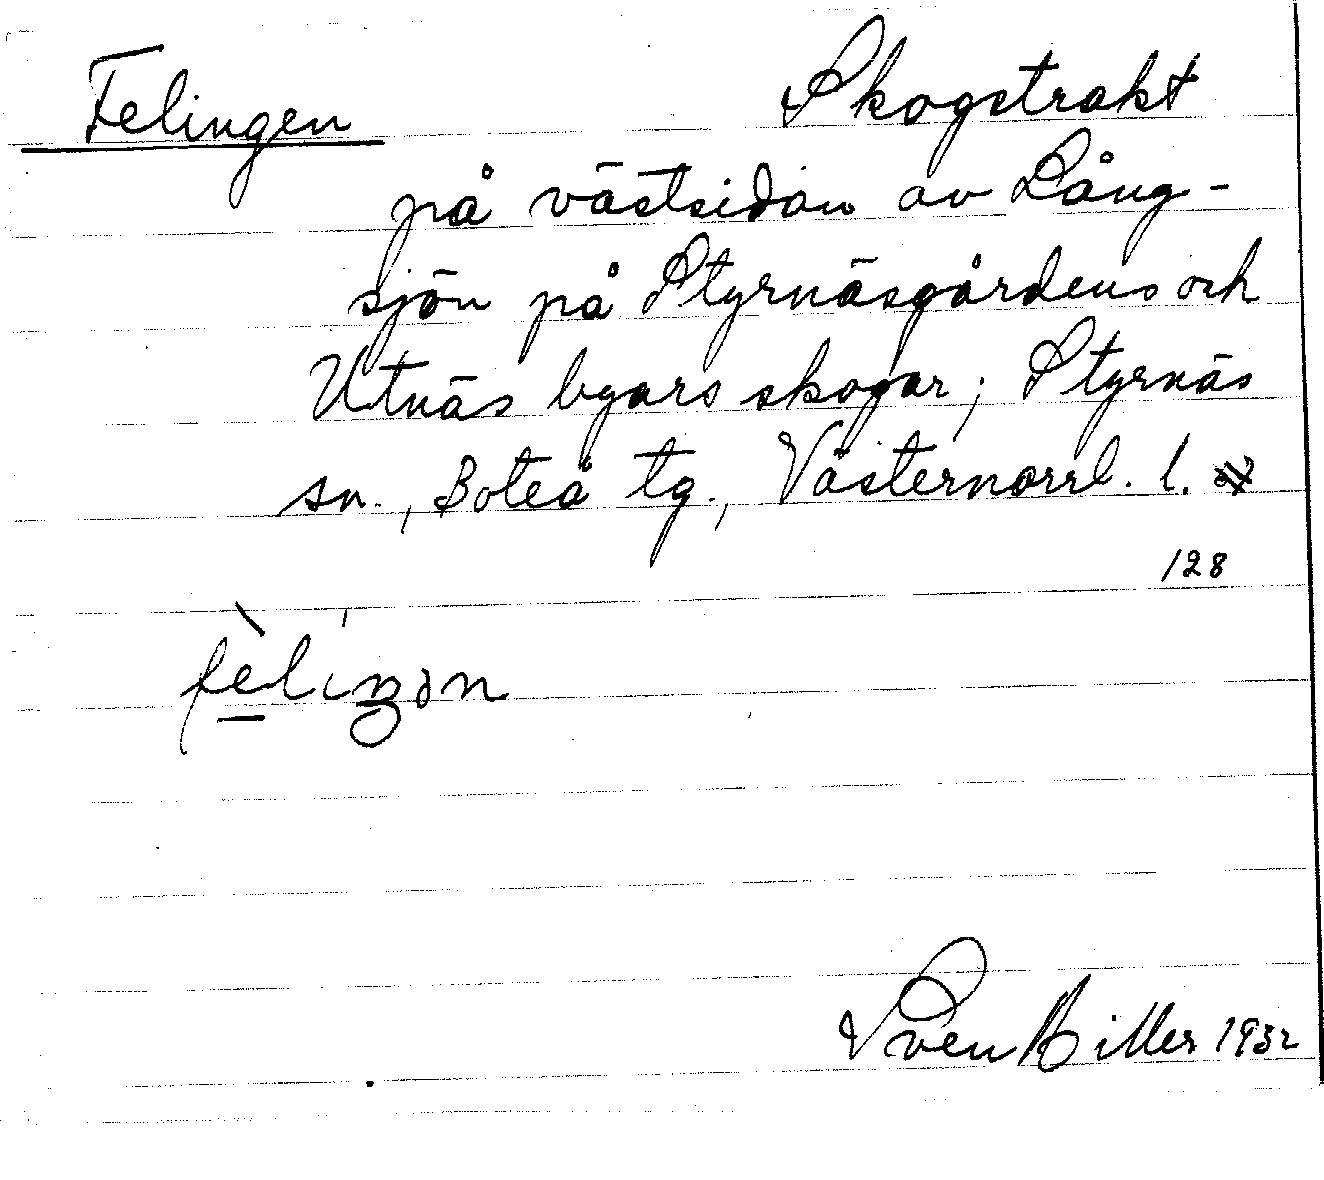 Felingen Skogstrakt
på västsidan av Lång-
sjön på Styrnäsgårdens och
Utnäs byars skogar; Styrnäs
sn., Boteå tg., Västernorrl. l.
128
fèlíŋən
Sven Hiller 1932